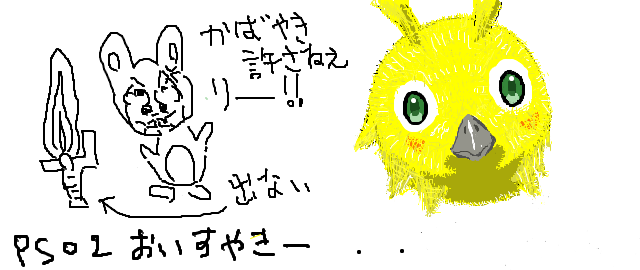 かばやき
許さねぇ
りー!!
出ない
PSO2 おいすやきー ・・